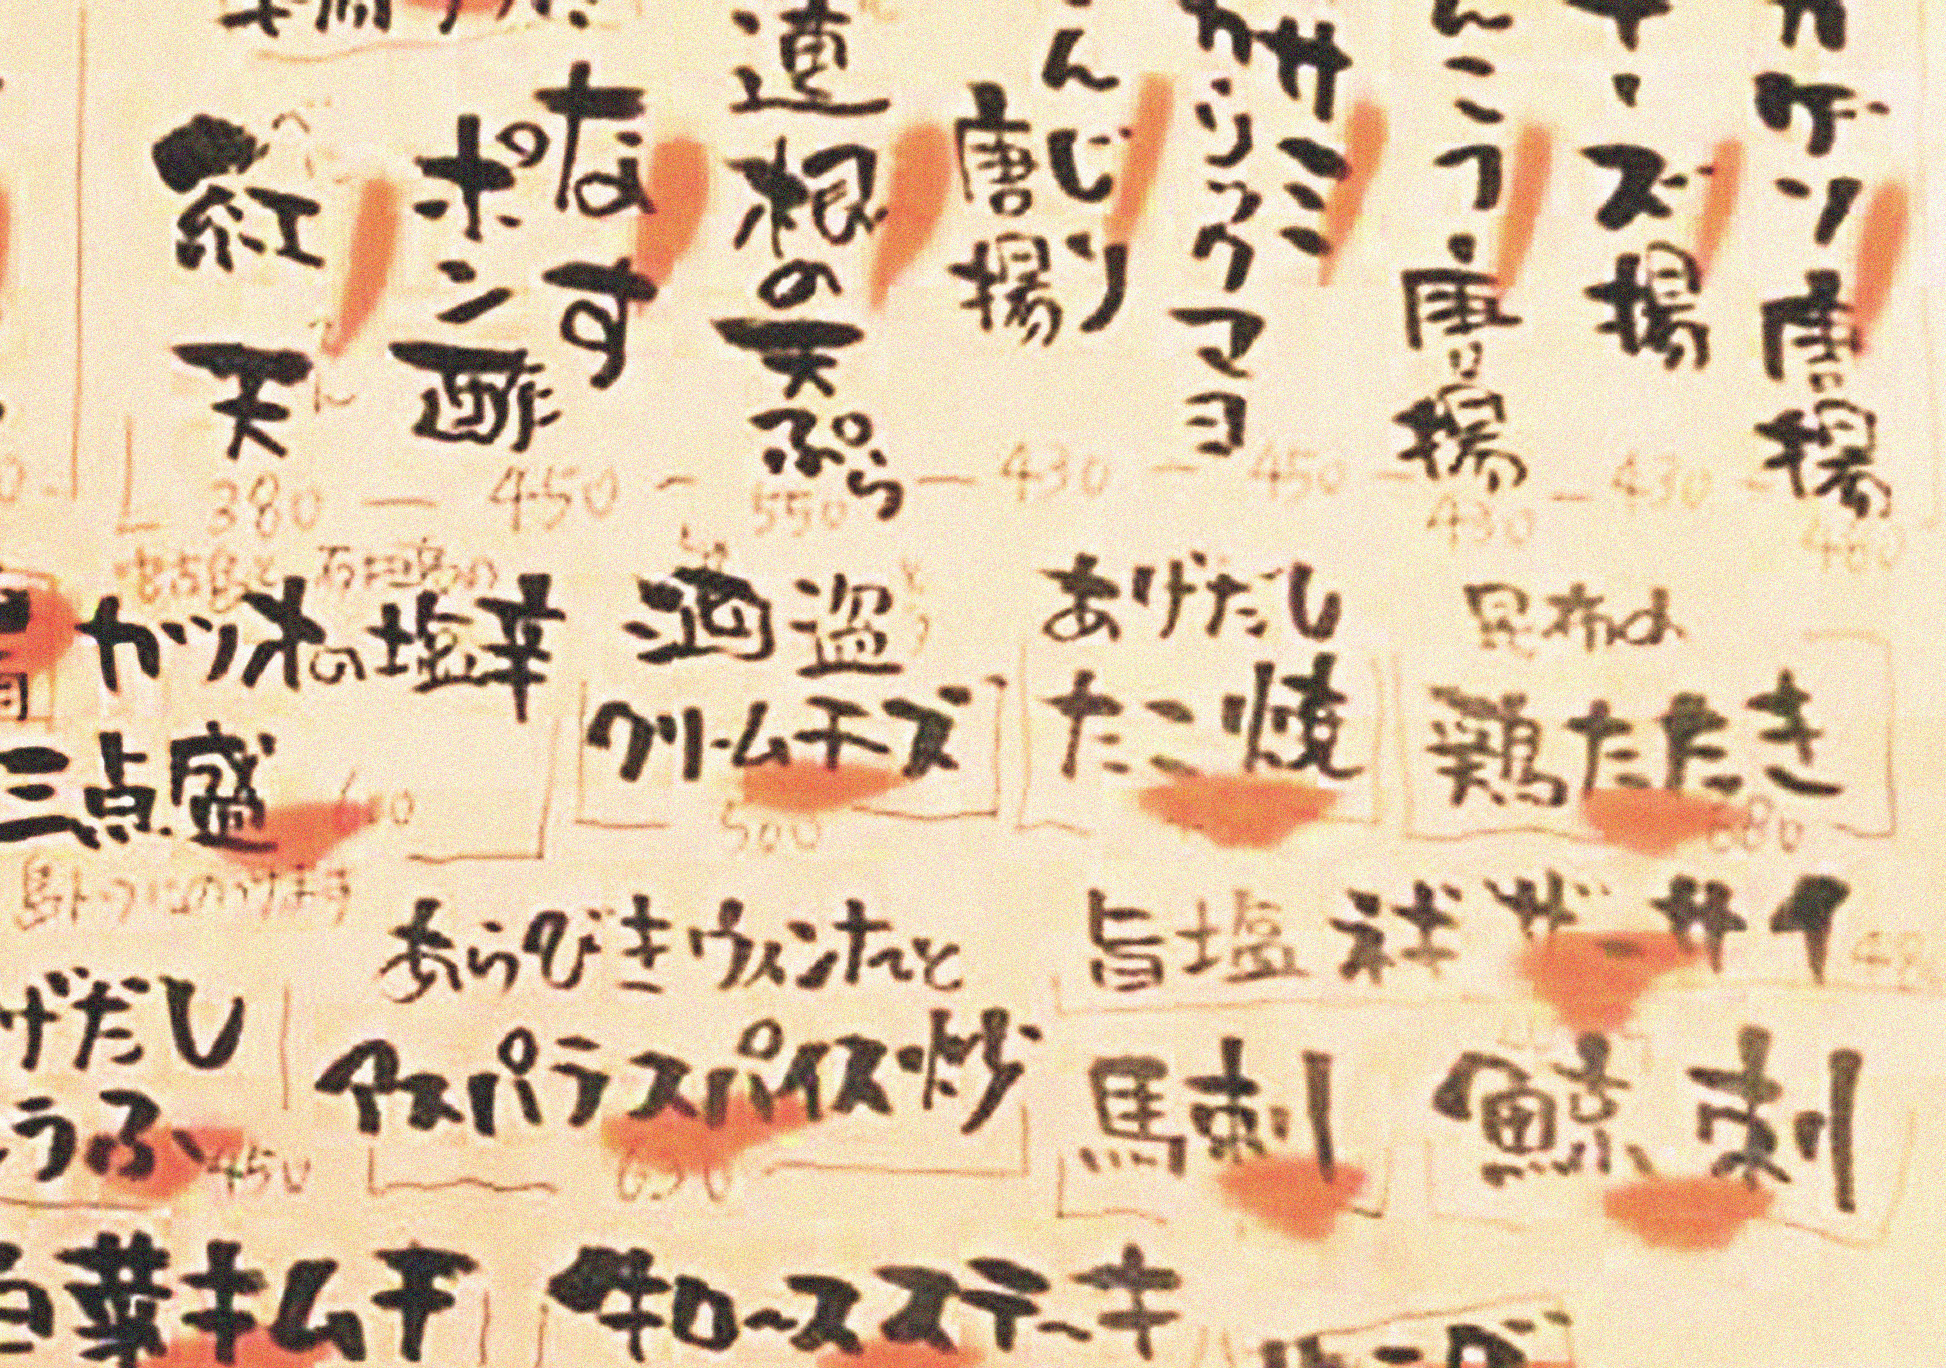 唐揚
ズ揚
唐揚
ササミ
ガーリックマヨ
んじり
唐揚
蓮根の天ぷら
なす
ポン酢
紅天
380 — 450 — 550 — 430 — 450 — 430 — 430 — 460
昆布〆
鶏たたき
680
あげだし
たこ焼
酒盗
クリームチーズ
500
石垣島の
カツオの塩辛
三点盛
島トウフにのっけます
旨塩ネギザーサイ
あらびきウィンナーと
アスパラスパイス炒
630
げだし
うふ
450
馬刺
鯨刺
白菜キムチ
牛ロースステーキ